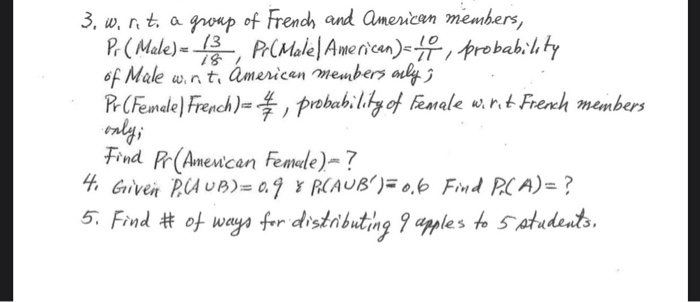 3. w. r. t. a group of French and American members,
Pr(Male)=13/18, Pr(Male|American)=10/11, probability
of Male w.r.t. American members only;
Pr(Female|French)=4/7, probability of Female w.r.t French members
only;
Find Pr(American Female)=?
4. Given Pr(A∪B)=0.9 & Pr(A∪B')=0.6 Find Pr(A)=?
5. Find # of ways for distributing 9 apples to 5 students.